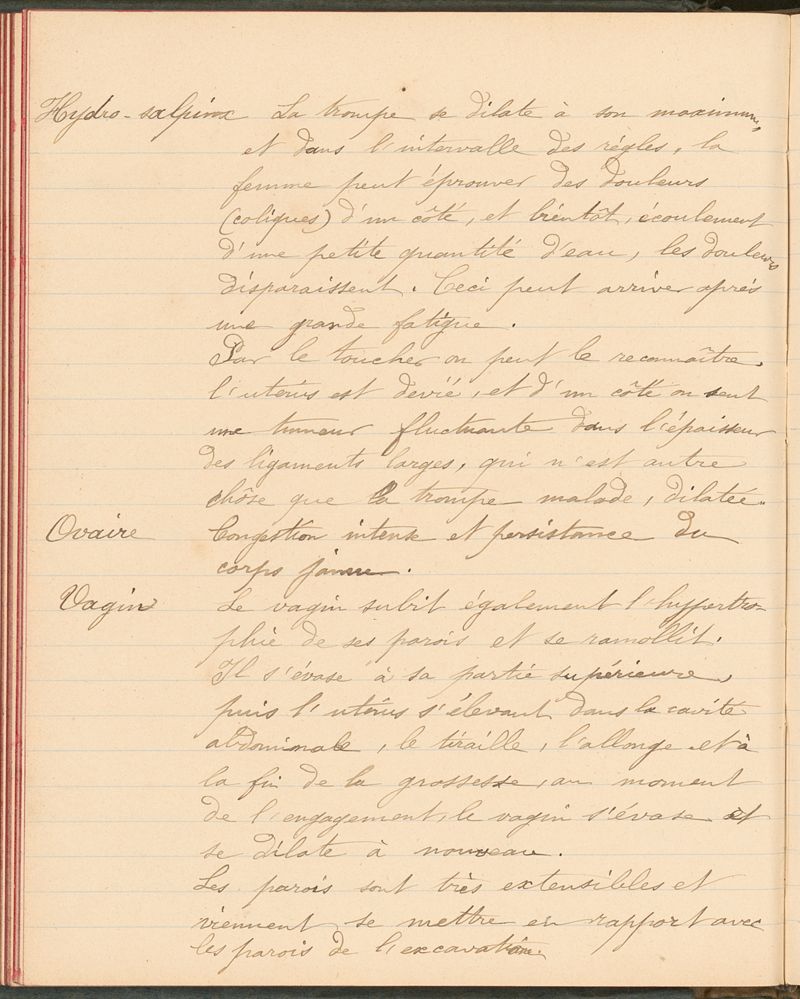 Hydro-salpinx La trompe se dilate à son maximum,
et dans l'intervalle des règles, la
femme peut éprouver des douleurs
(coliques) d'un côté, et bientôt, écoulement
d'une petite quantité d'eau, les douleurs
disparaissent. Ceci peut arriver après
une grande fatigue.
Par le toucher on peut le reconnaître.
l'utérus est dévié, et d'un côté on sent
une tumeur fluctuante dans l'épaisseur
des ligaments larges, qui n'est autre
chôse que la trompe malade, dilatée.
Ovaire Congestion intense et persistance du
corps jaune.
Vagin Le vagin subit également l'hypertro-
phie de ses parois et se ramollit.
Il s'évase à sa partie supérieure,
puis l'utérus s'élevant dans la cavité
abdominale, le tiraille, l'allonge et à
la fin de la grossesse, au moment
de l'engagement, le vagin s'évase et
se dilate à nouveau.
Les parois sont très extensibles et
viennent se mettre en rapport avec
les parois de l'excavation.